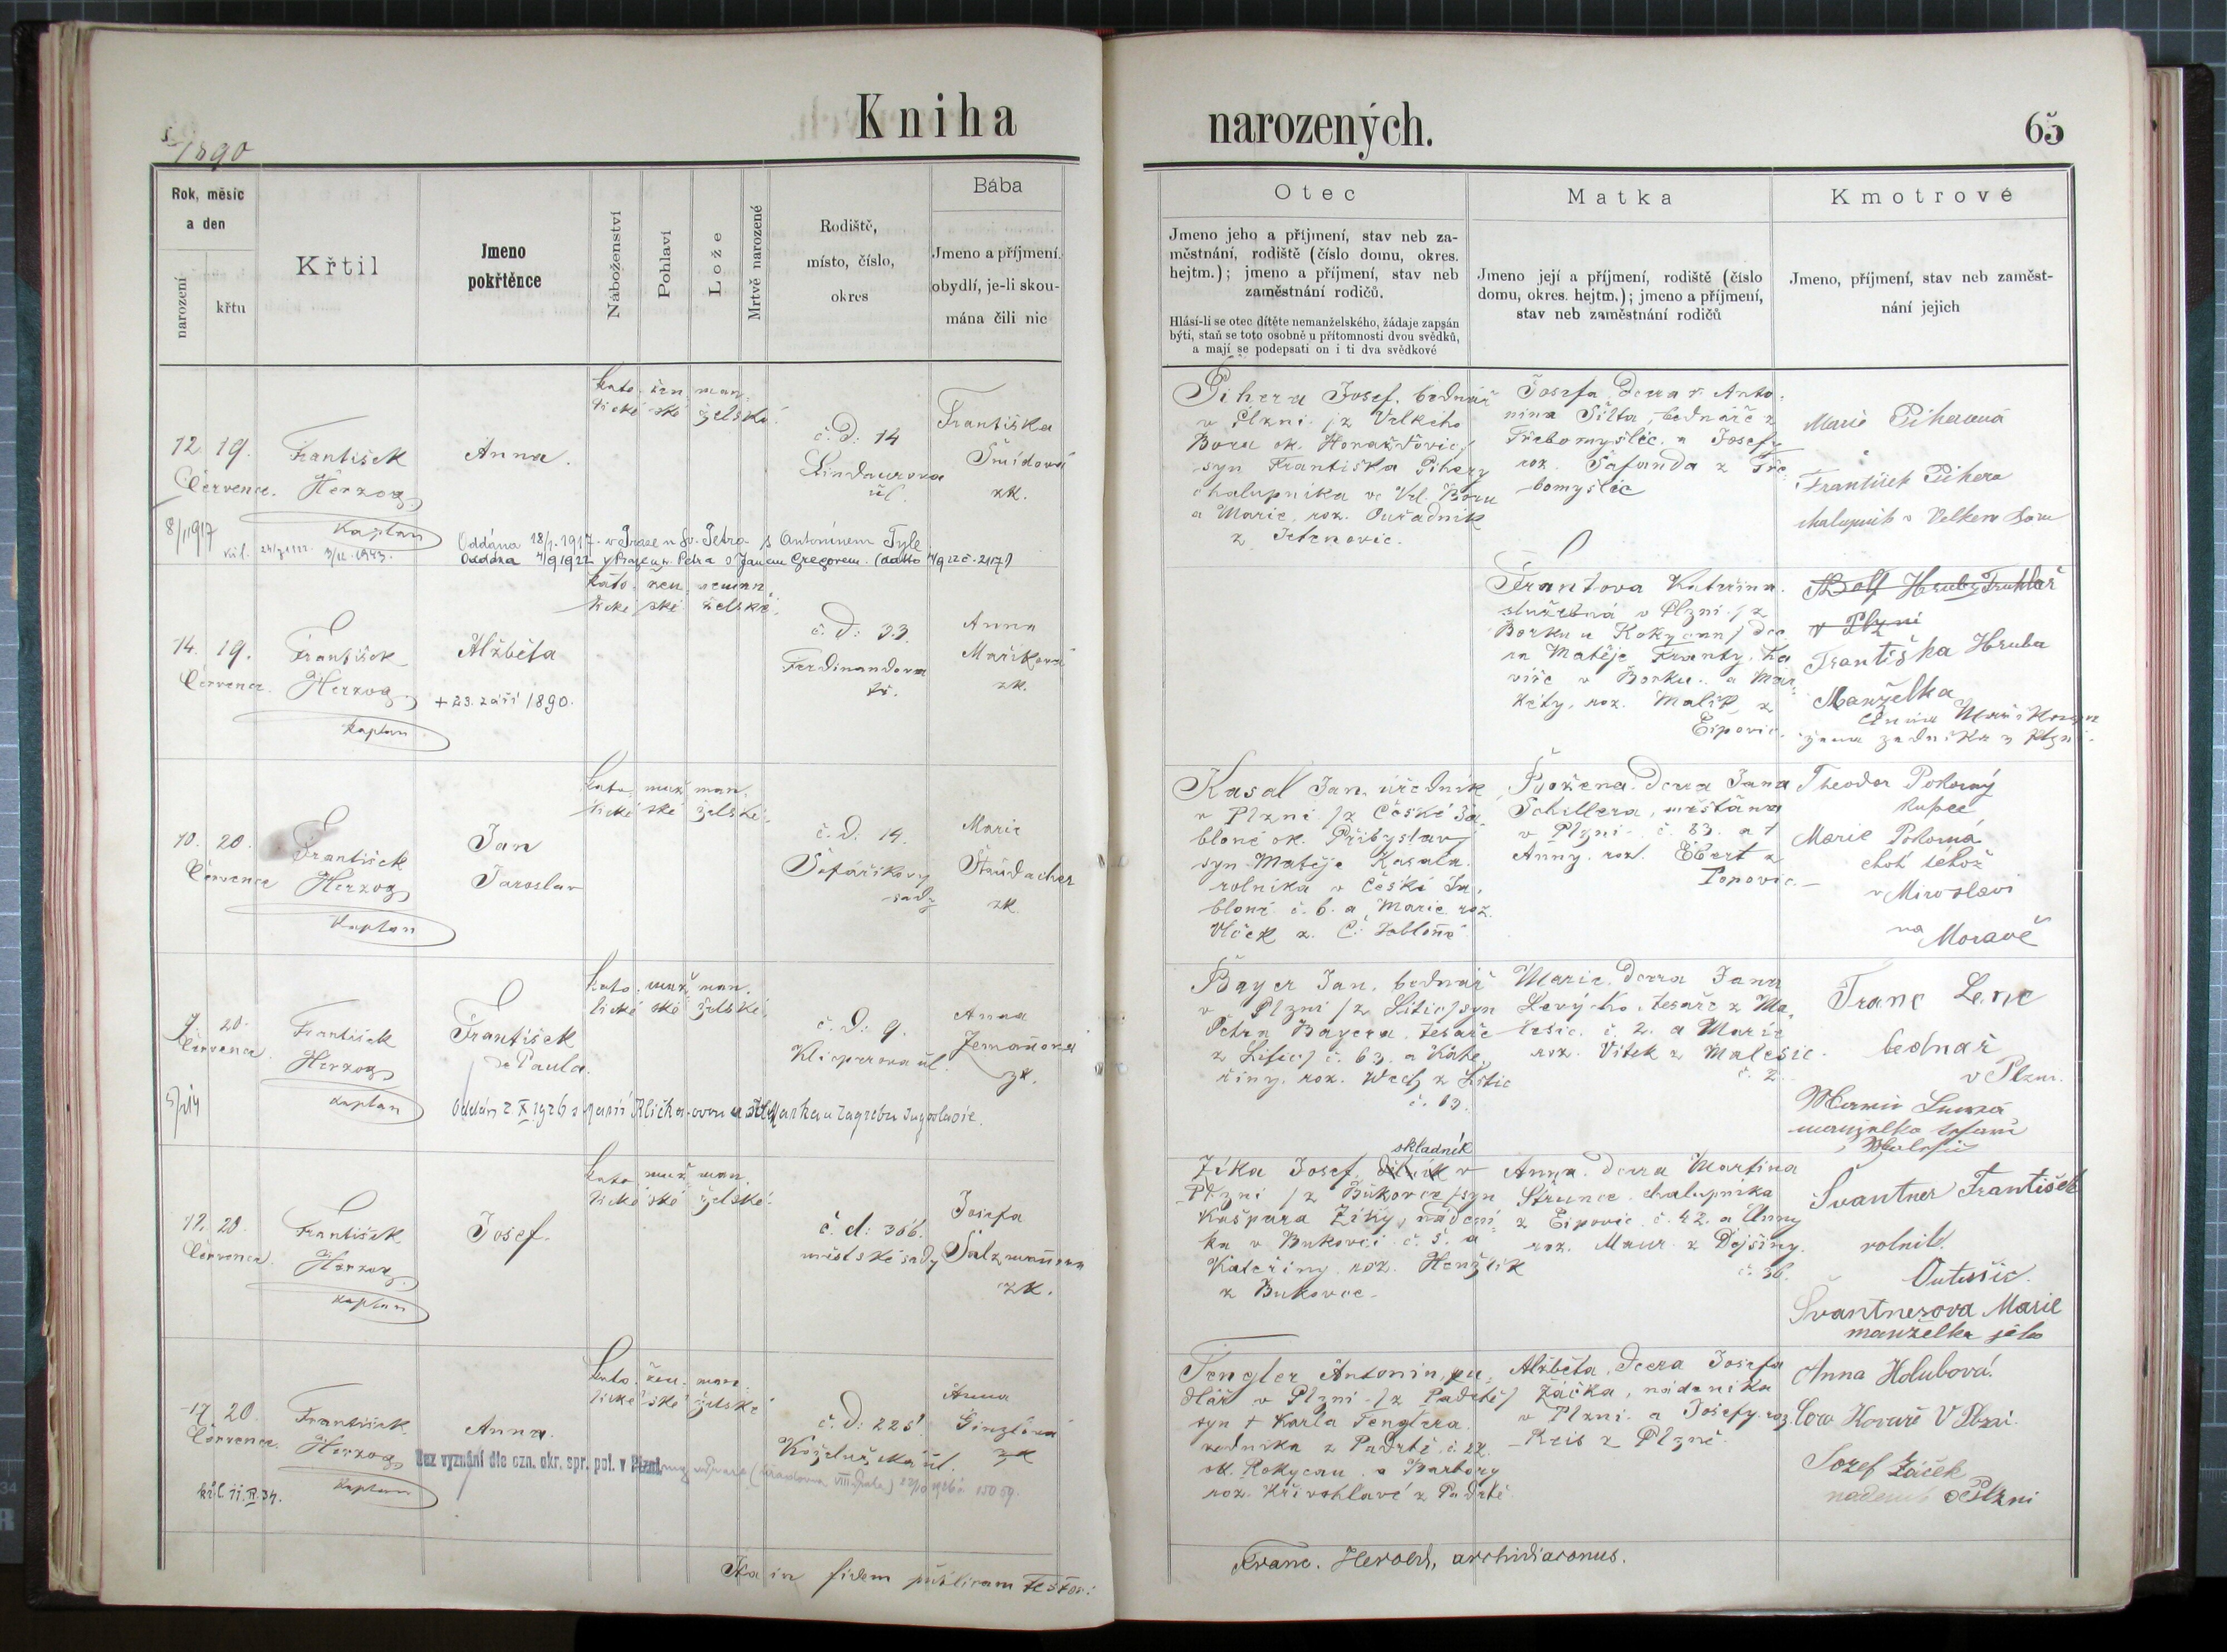 Kniha
narozených.
65
1890
Rok, měsíc
a den
narození
křtu
Křtil
Jmeno
pokřtěnce
Náboženství
Pohlaví
Lože
Mrtvě narozené
Rodiště,
místo, číslo,
okres
Bába
Jmeno a příjmení,
obydlí, je-li skou-
mána čili nic
Otec
Jmeno jeho a příjmení, stav neb za-
městnání, rodiště (číslo domu, okres.
hejtm.); jmeno a příjmení, stav neb
zaměstnání rodičů.
Hlásí-li se otec dítěte nemanželského, žádaje zapsán
býti, staň se toto osobně u přítomnosti dvou svědků,
a mají se podepsati on i ti dva svědkové
Matka
Jmeno její a příjmení, rodiště (číslo
domu, okres. hejtm.); jmeno a příjmení,
stav neb zaměstnání rodičů
Kmotrové
Jmeno, příjmení, stav neb zaměst-
nání jejich
12. 19.
Července.
František
Herzog
kaplan
Anna.
kato- žen- man-
lické ské želské.
č. d: 14
Lindaurova
ul.
Františka
Šmídová
zk.
Pihera Josef, bednář
v Plzni /z Velkého
Boru ok. Horažďovic/
syn Františka Pihery
chalupníka ve Vel. Boru
a Marie, roz. Ouřadník
z Jetenovic.
Josefa, dcera † Anto-
nína Šilta, bednáře z
Třebomyslic a Josefy
roz. Šafanda z Tře-
bomyslic
Marie Piherová
František Pihera
chalupník v Velkem Boru
8/1 1917
Oddána 18/1. 1917 v Praze u sv. Petra s Antonínem Tyle
Oddána 4/9 1922 v Praze u sv. Petra s Janem Gregorem.
14. 19.
Července.
František
Herzog
kaplan
Alžběta
+ 23. září 1890.
kato- žen- neman-
lické ské želské.
č. d: 33
Ferdinandova
tř.
Anna
Maříková
zk.
Frantova Kateřina
služebná v Plzni /z
Borku u Rokycan/ dce-
ra Matěje Franty, ko-
váře v Borku a Mar-
kéty, roz. Malík z
Ejpovic.
Hruby Truhlář
v Plzni
Františka Hruba
Manželka
10. 20.
Července
František
Herzog
kaplan
Jan
Jaroslav
kato- muž- man-
lické ské želské.
č. d: 14.
Šafaříkovy
sady
Marie
Štrüdacher
zk.
Kasal Jan, úředník
v Plzni /z České Ja-
bloné ok. Přibyslav/
syn Matěje Kasala
rolníka v České Ja-
bloné č. 6. a Marie roz.
Vlček z Č. Jabloné
Božena, dcera Jana
Schillera, měšťana
v Plzni č. 83. a †
Anny, roz. Ebert z
Popovic.
Theodor Pokorný
kupec
Marie Pokorná
choť téhož
v Miroslavi
na Moravě
7. 20.
Července
František
Herzog
kaplan
František
de Paula.
kato- muž- man-
lické ské želské.
č. d: 9.
Klicperova ul.
Anna
Zemanová
zk.
Bayer Jan, bednář
v Plzni /z Litic/ syn
Petra Bayera, tesaře
z Litic/ č. 63. a Kate-
řiny, roz. Wech z Litic
č. 13.
Marie, dcera Jana
Levýho, tesaře z Ma-
lesic č. 2. a Marie
roz. Vítek z Malesic
č. 2.
Franc Lenc
bednař
v Plzni.
17. 20.
Července.
František
Herzog
kaplan
Josef.
kato- muž- man-
lické ské želské.
č. d: 366.
městské sady
Josefa
Salzmannova
zk.
skladník
Zíka Josef, dělník v
Plzni /z Bukovce/ syn
Kašpara Zíky, nádení-
ka v Bukovci č. 5. a
Kateřiny roz. Henžlík
z Bukovce.
Anna, dcera Martina
Střence, chalupníka
z Ejpovic č. 42. a Anny
roz. Maur z Dejšiny.
č. 36.
Švantner František
rolník
Outušic.
Švantnerova Marie
manželka jeho
17. 20.
Července.
František
Herzog
kaplan
Anna.
Bez vyznání dle ozn. okr. spr. pol. v Plzni
kato- žen- man-
lické ské želské
č. d: 225
Koželužská ul.
Anna
Ginzlová
zk
Tengler Antonín, pu-
dlář v Plzni /z Padrtě/
syn † Karla Tenglera
zedníka z Padrtě č. 22.
ok. Rokycan a Barbory
roz. Křivohlavé z Padrtě
Alžběta, dcera Josefa
Žáčka, nádeníka
v Plzni a Josefy roz.
Reis z Plzně
Anna Holubová.
V Plzni.
Josef Žáček
v Plzni
Ita in fidem publicam testor:
Franc. Herold, archidiaconus.